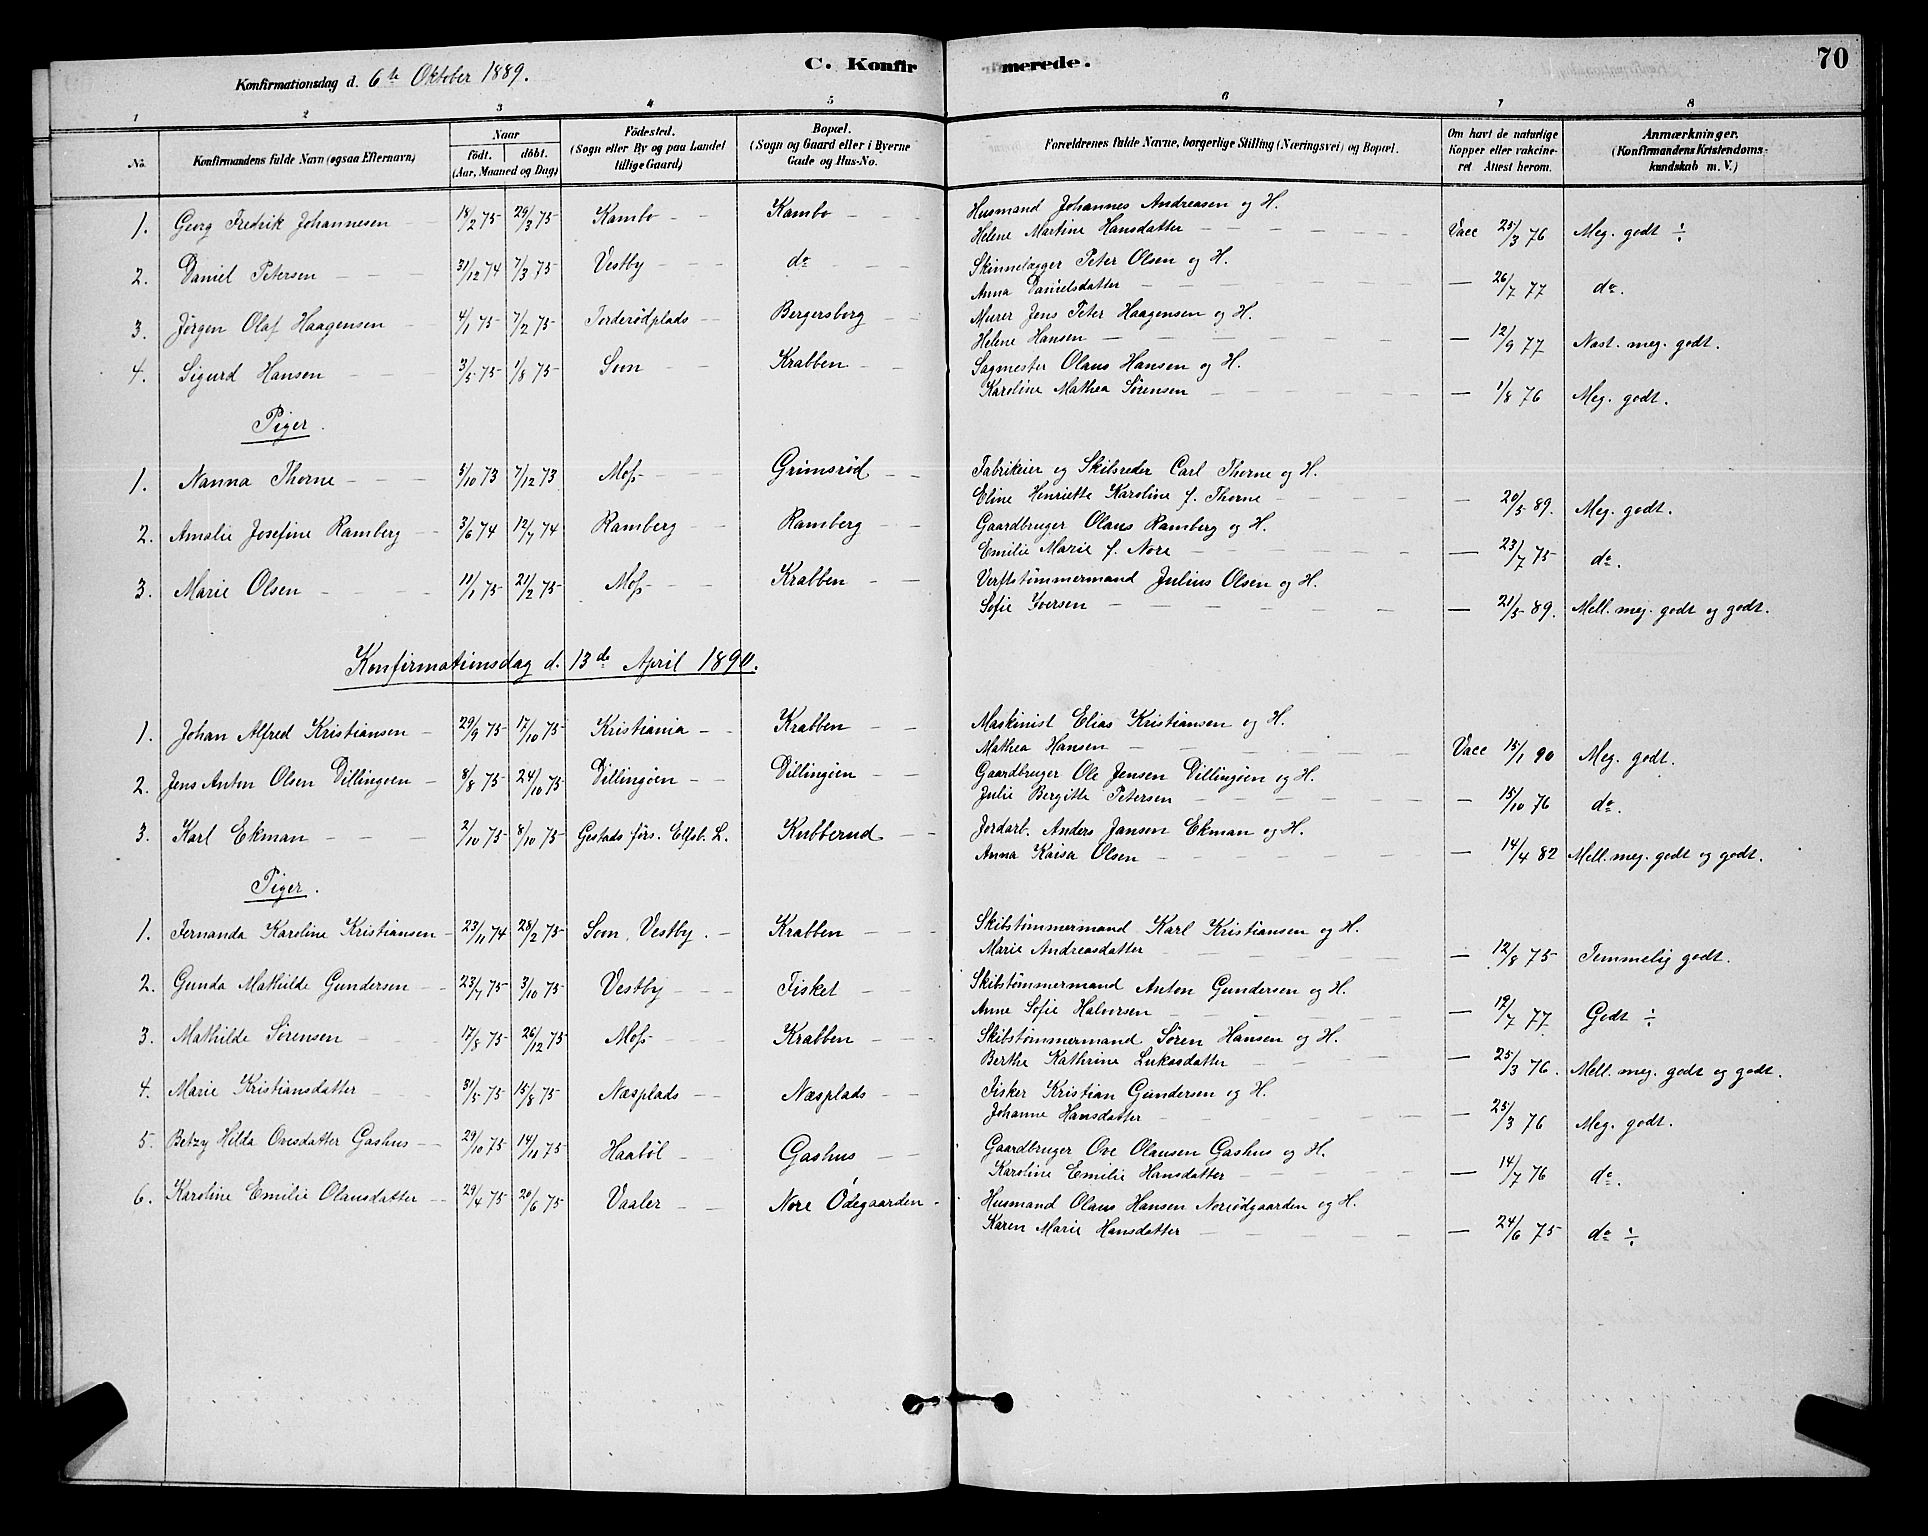 Konfirmationsdag d. 6te Oktober 1889.
C. Konfirmerede.
70
1 2 3 4 5 6 7 8
No. Konfirmandens fulde Navn (ogsaa Efternavn) Naar födt. döbt. (Aar, Maaned og Dag) Födested. (Sogn eller By og paa Landet tillige Gaard) Bopæl. (Sogn og Gaard eller i Byerne Gade og Hus-No. Forældrenes fulde Navne, borgerlige Stilling (Næringsvei) og Bopæl. Om havt de naturlige Kopper eller vakcineret Attest herom. Anmærkninger. (Konfirmandens Kristendomskundskab m. V.)
1. Georg Fredrik Johannesen 18/2 75 29/3 75 Kambo Kambo Husmand Johannes Andreasen og H.
Helene Martine Hansdatter Vacc 25/3 76 Meg. godt ÷
2. Daniel Petersen 31/12 74 7/3 75 Vestby do Skinnelægger Peter Olsen og H.
Anna Danielsdatter — 26/7 77 do.
3. Jørgen Olaf Haagensen 4/1 75 7/2 75 Torderødplads Bergersborg Murer Jens Peter Haagensen og H.
Helene Hansen — 12/9 77 Næst. meg. godt.
4. Sigurd Hansen 3/5 75 1/8 75 Soon Krabben Sagmester Olaus Hansen og H.
Karoline Mathea Sørensen — 1/8 76 Meg. godt.
Piger.
1. Nanna Thorne 5/10 73 7/12 73 Moss Grimsrød Fabrikeier og Skibsreder Carl Thorne og H.
Eline Henriette Karoline f. Thorne — 20/5 89. Meg. godt.
2. Amalie Josefine Ramberg 3/6 74 12/7 74 Ramberg Ramberg Gaardbruger Olaus Ramberg og H.
Emilie Marie f. Nore — 23/7 75 do.
3. Marie Olsen 11/1 75 21/2 75 Moss Krabben Verftstømmermand Julius Olsen og H.
Sofie Iversen — 21/5 89. Mell. meg. godt og godt.
Konfirmationsdag d. 13de April 1890.
1. Johan Alfred Kristiansen 29/9 75 17/10 75 Kristiania Krabben Maskinist Elias Kristiansen og H.
Mathea Hansen Vacc 15/1 90 Meg. godt.
2. Jens Anton Olsen Dillingøen 8/8 75 24/10 75 Dillingøen Dillingøen Gaardbruger Ole Jensen Dillingøen og H.
Julie Bergitte Petersen — 15/10 76 do.
3. Karl Ekman 2/10 75 8/10 75 Gestads førs. Elfsb. L. Kubberud Jordarb. Anders Jansen Ekman og H.
Anna Kaisa Olsen — 14/4 82 Mell. meg. godt og godt.
Piger.
1. Fernanda Karoline Kristiansen 23/11 74 28/2 75 Soon, Vestby. Krabben Skibstømmermand Karl Kristiansen og H.
Marie Andreasdatter — 12/8 75 Temmelig godt.
2. Gunda Mathilde Gundersen 23/7 75 3/10 75 Vestby Fisket Skibstømmermand Anton Gundersen og H.
Anne Sofie Halvorsen — 19/7 77 Godt ÷
3. Mathilde Sørensen 17/8 75 26/12 75 Moss Krabben Skibstømmermand Søren Hansen og H.
Berthe Kathrine Lukasdatter — 25/3 76. Mell. meg. godt og godt.
4. Marie Kristiansdatter 31/5 75 15/8 75 Næsplads Næsplads Fisker Kristian Gundersen og H.
Johanne Hansdatter — 25/3 76 Meg. godt.
5. Betzy Hilda Ovesdatter Gashus 29/10 75 14/11 75 Haabøl Gashus Gaardbruger Ove Olausen Gashus og H.
Karoline Emilie Hansdatter — 14/7 76 do.
6. Karoline Emilie Olausdatter 29/4 75 20/6 75 Vaaler Nore Ødegaarden Husmand Olaus Hansen Norødgaarden og H.
Karen Marie Hansdatter — 24/6 75 do ÷